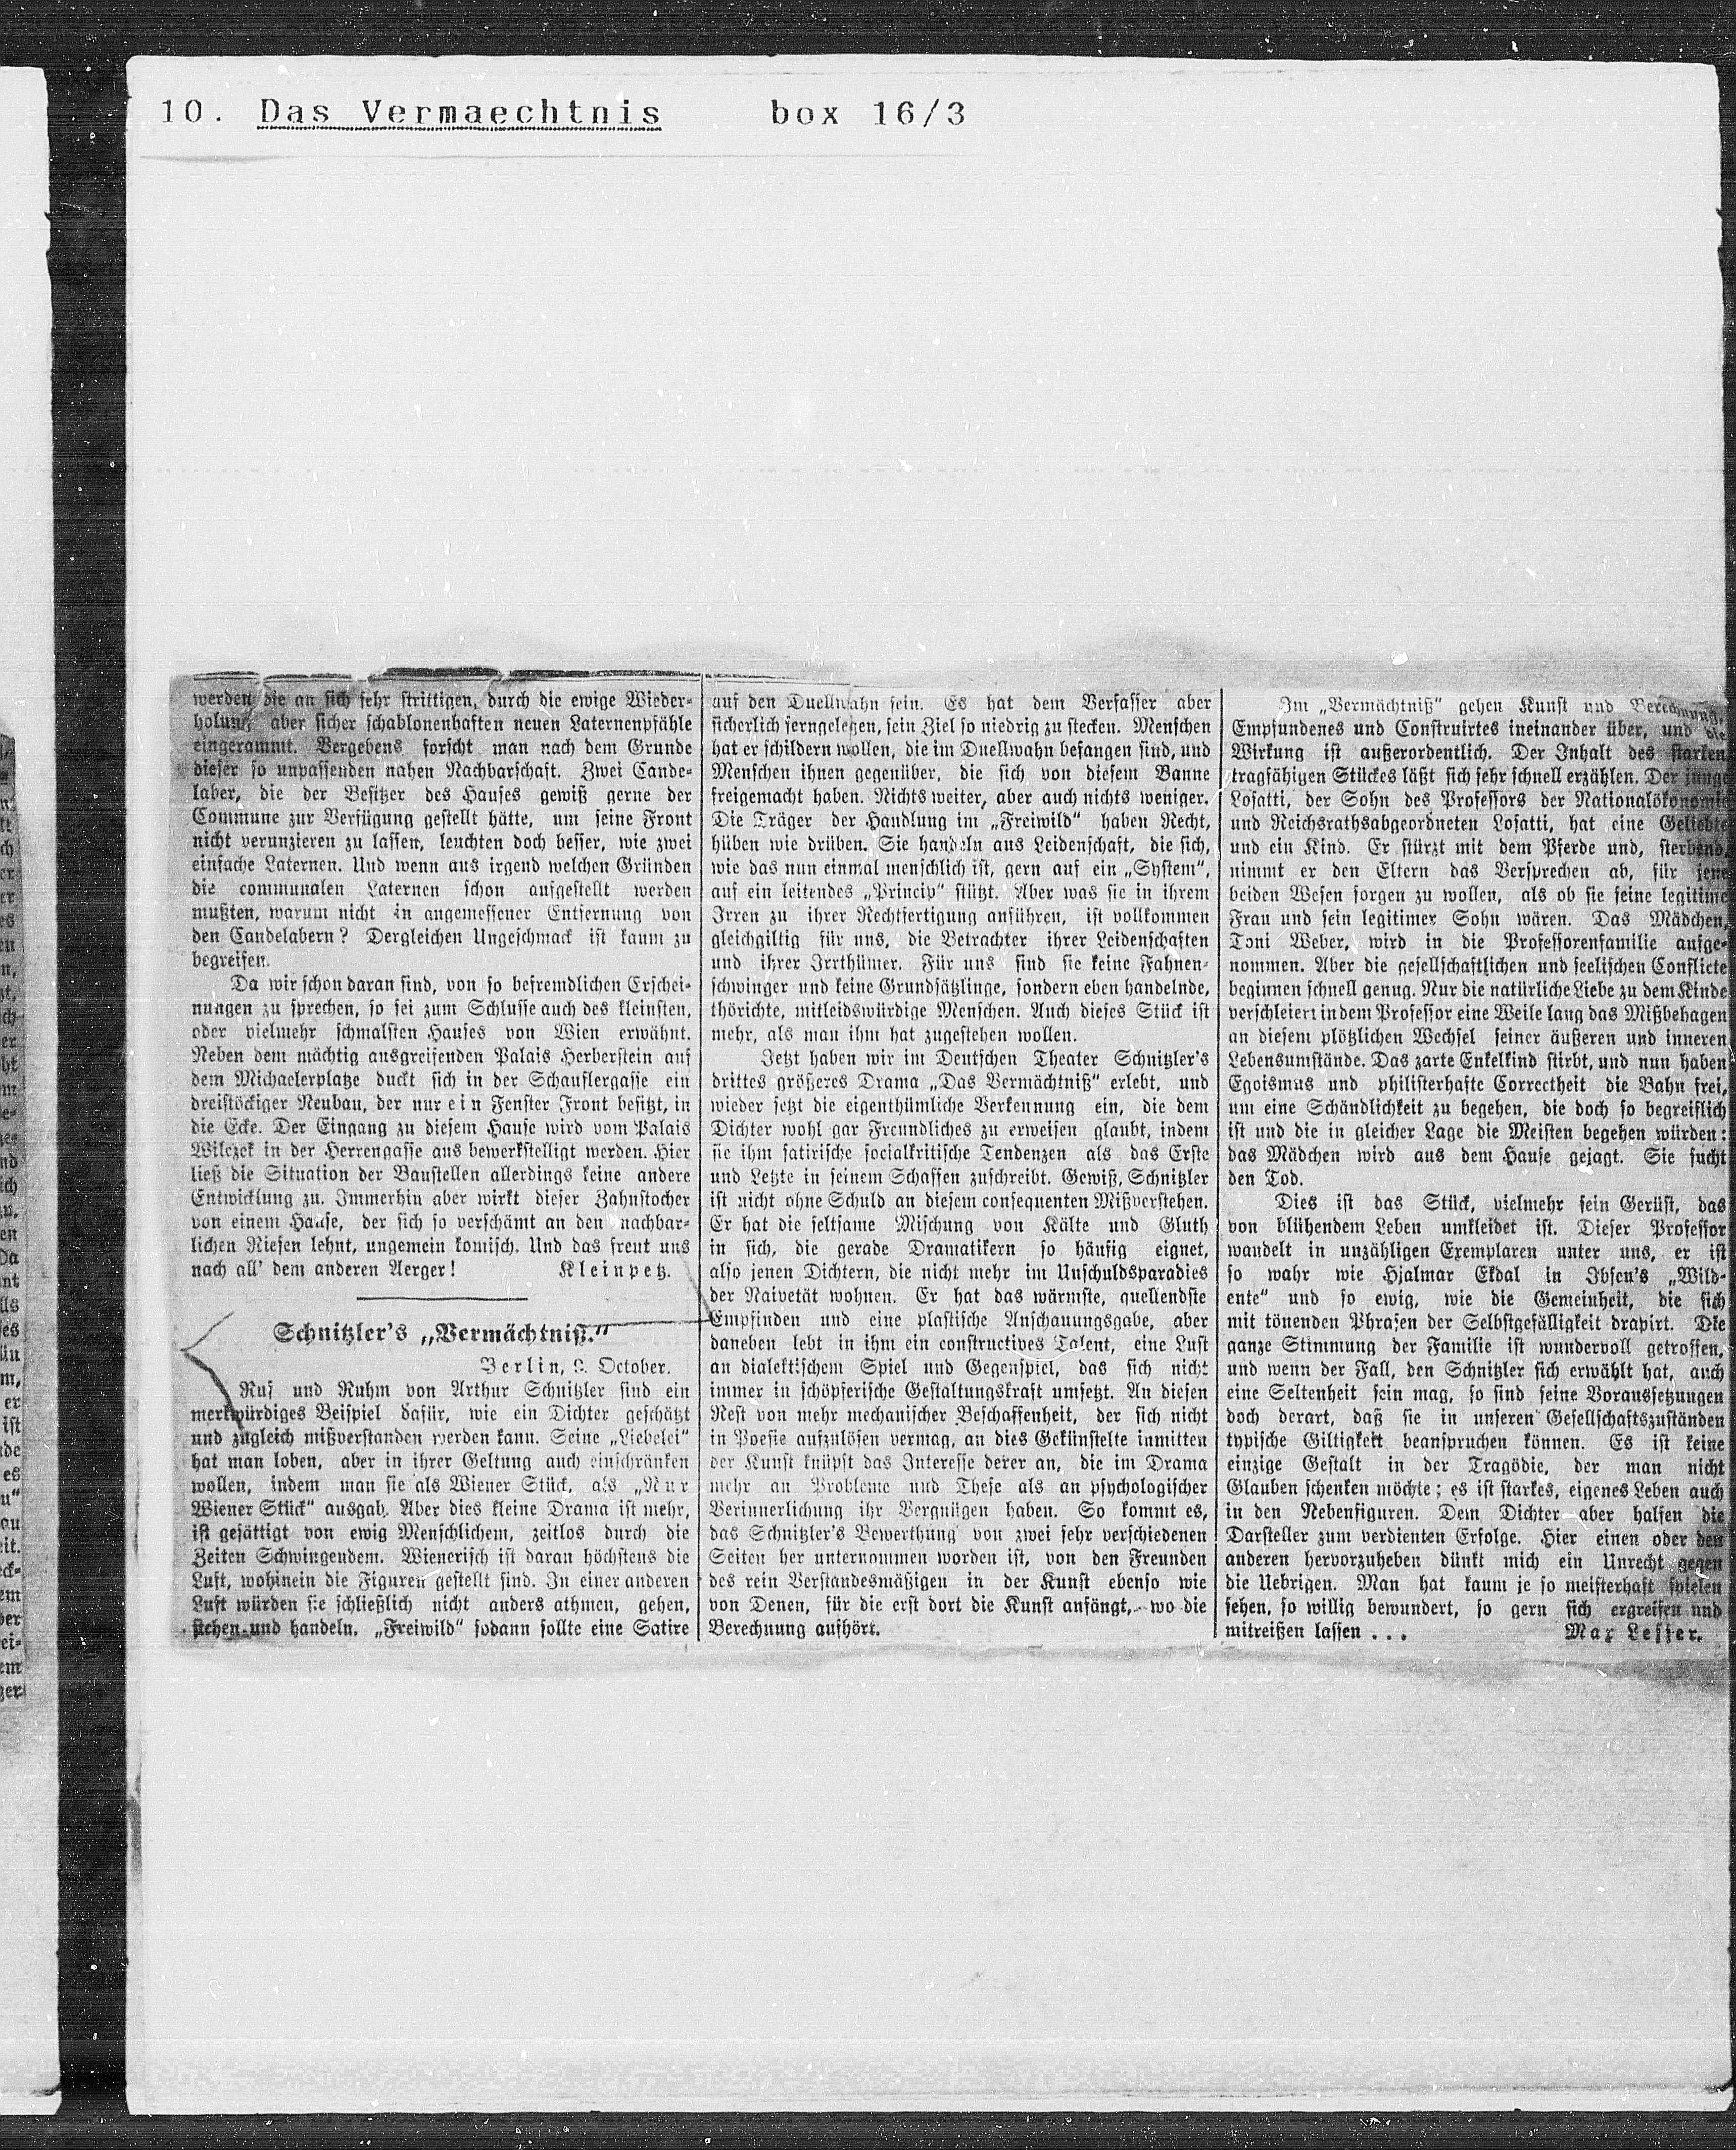 10. Das Vermaechtnis box 16/3
werden die an sich sehr strittigen, durch die ewige Wieder-
holung aber sicher schablonenhaften neuen Laternenpfähle
eingerammt. Vergebens forscht man nach dem Grunde
dieser so unpassenden nahen Nachbarschaft. Zwei Cande-
laber, die der Besitzer des Hauses gewiß gerne der
Commune zur Verfügung gestellt hätte, um seine Front
nicht verunzieren zu lassen, leuchten doch besser, wie zwei
einfache Laternen. Und wenn aus irgend welchen Gründen
die communalen Laternen schon aufgestellt werden
mußten, warum nicht in angemessener Entfernung von
den Candelabern? Dergleichen Ungeschmack ist kaum zu
begreifen.
Da wir schon daran sind, von so befremdlichen Erschei-
nungen zu sprechen, so sei zum Schlusse auch des kleinsten,
oder vielmehr schmalsten Hauses von Wien erwähnt.
Neben dem mächtig ausgreifenden Palais Herberstein auf
dem Michaelerplatze duckt sich in der Schauflergasse ein
dreistöckiger Neubau, der nur ein Fenster Front besitzt, in
die Ecke. Der Eingang zu diesem Hause wird vom Palais
Wilczek in der Herrengasse aus bewerkstelligt werden. Hier
ließ die Situation der Baustellen allerdings keine andere
Entwicklung zu. Immerhin aber wirkt dieser Zahnstocher
von einem Hause, der sich so verschämt an den nachbar-
lichen Riesen lehnt, ungemein komisch. Und das freut uns
nach all' dem anderen Aerger! Kleinpetz.
Schnitzler's „Vermächtniß."
Berlin, 9. October.
Ruf und Ruhm von Arthur Schnitzler sind ein
merkwürdiges Beispiel dafür, wie ein Dichter geschätzt
und zugleich mißverstanden werden kann. Seine „Liebelei"
hat man loben, aber in ihrer Geltung auch einschränken
wollen, indem man sie als Wiener Stück, als „Nur
Wiener Stück" ausgab. Aber dies kleine Drama ist mehr,
ist gesättigt von ewig Menschlichem, zeitlos durch die
Zeiten Schwingendem. Wienerisch ist daran höchstens die
Luft, wohinein die Figuren gestellt sind. In einer anderen
Luft würden sie schließlich nicht anders athmen, gehen,
stehen und handeln. „Freiwild" sodann sollte eine Satire
auf den Duellwahn sein. Es hat dem Verfasser aber
sicherlich ferngelegen, sein Ziel so niedrig zu stecken. Menschen
hat er schildern wollen, die im Duellwahn befangen sind, und
Menschen ihnen gegenüber, die sich von diesem Banne
freigemacht haben. Nichts weiter, aber auch nichts weniger.
Die Träger der Handlung im „Freiwild" haben Recht,
hüben wie drüben. Sie handeln aus Leidenschaft, die sich,
wie das nun einmal menschlich ist, gern auf ein „System",
auf ein leitendes „Princip" stützt. Aber was sie in ihrem
Irren zu ihrer Rechtfertigung anführen, ist vollkommen
gleichgiltig für uns, die Betrachter ihrer Leidenschaften
und ihrer Irrthümer. Für uns sind sie keine Fahnen-
schwinger und keine Grundsätzlinge, sondern eben handelnde,
thörichte, mitleidswürdige Menschen. Auch dieses Stück ist
mehr, als man ihm hat zugestehen wollen.
Jetzt haben wir im Deutschen Theater Schnitzler's
drittes größeres Drama „Das Vermächtniß" erlebt, und
wieder setzt die eigenthümliche Verkennung ein, die dem
Dichter wohl gar Freundliches zu erweisen glaubt, indem
sie ihm satirische socialkritische Tendenzen als das Erste
und Letzte in seinem Schaffen zuschreibt. Gewiß, Schnitzler
ist nicht ohne Schuld an diesem consequenten Mißverstehen.
Er hat die seltsame Mischung von Kälte und Gluth
in sich, die gerade Dramatikern so häufig eignet,
also jenen Dichtern, die nicht mehr im Unschuldsparadies
der Naivetät wohnen. Er hat das wärmste, quellendste
Empfinden und eine plastische Anschauungsgabe, aber
daneben lebt in ihm ein constructives Talent, eine Lust
an dialektischem Spiel und Gegenspiel, das sich nicht
immer in schöpferische Gestaltungskraft umsetzt. An diesen
Rest von mehr mechanischer Beschaffenheit, der sich nicht
in Poesie aufzulösen vermag, an dies Gekünstelte inmitten
der Kunst knüpft das Interesse derer an, die im Drama
mehr an Probleme und These als an psychologischer
Verinnerlichung ihr Vergnügen haben. So kommt es,
das Schnitzler's Bewerthung von zwei sehr verschiedenen
Seiten her unternommen worden ist, von den Freunden
des rein Verstandesmäßigen in der Kunst ebenso wie
von Denen, für die erst dort die Kunst anfängt, wo die
Berechnung aufhört.
Im „Vermächtniß" gehen Kunst und Berechnung,
Empfundenes und Construirtes ineinander über, und die
Wirkung ist außerordentlich. Der Inhalt des starken
tragfähigen Stückes läßt sich sehr schnell erzählen. Der junge
Losatti, der Sohn des Professors der Nationalökonomie
und Reichsrathsabgeordneten Losatti, hat eine Geliebte
und ein Kind. Er stürzt mit dem Pferde und, sterbend,
nimmt er den Eltern das Versprechen ab, für jene
beiden Wesen sorgen zu wollen, als ob sie seine legitime
Frau und sein legitimer Sohn wären. Das Mädchen,
Toni Weber, wird in die Professorenfamilie aufge-
nommen. Aber die gesellschaftlichen und seelischen Conflicte
beginnen schnell genug. Nur die natürliche Liebe zu dem Kinde
verschleiert in dem Professor eine Weile lang das Mißbehagen
an diesem plötzlichen Wechsel seiner äußeren und inneren
Lebensumstände. Das zarte Enkelkind stirbt, und nun haben
Egoismus und philisterhafte Correctheit die Bahn frei,
um eine Schändlichkeit zu begehen, die doch so begreiflich
ist und die in gleicher Lage die Meisten begehen würden:
das Mädchen wird aus dem Hause gejagt. Sie sucht
den Tod.
Dies ist das Stück, vielmehr sein Gerüst, das
von blühendem Leben umkleidet ist. Dieser Professor
wandelt in unzähligen Exemplaren unter uns, er ist
so wahr wie Hjalmar Ekdal in Ibsen's „Wild-
ente" und so ewig, wie die Gemeinheit, die sich
mit tönenden Phrasen der Selbstgefälligkeit drapirt. Die
ganze Stimmung der Familie ist wundervoll getroffen,
und wenn der Fall, den Schnitzler sich erwählt hat, auch
eine Seltenheit sein mag, so sind seine Voraussetzungen
doch derart, daß sie in unseren Gesellschaftszuständen
typische Giltigkeit beanspruchen können. Es ist keine
einzige Gestalt in der Tragödie, der man nicht
Glauben schenken möchte; es ist starkes, eigenes Leben auch
in den Nebenfiguren. Dem Dichter aber halfen die
Darsteller zum verdienten Erfolge. Hier einen oder den
anderen hervorzuheben dünkt mich ein Unrecht gegen
die Uebrigen. Man hat kaum je so meisterhaft spielen
sehen, so willig bewundert, so gern sich ergreifen und
mitreißen lassen . . . Max Lesser.